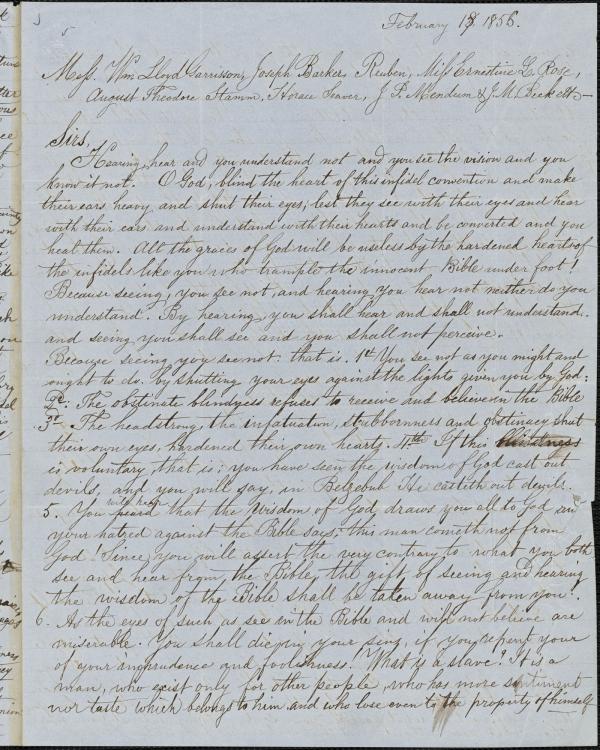 February 18 1856.
Mess. Wm Lloyd Garrisson, Joseph Barker, Reuben, Miss Ernestine L. Rose,
August Theodore Stamm, Horace Seaver, J. P. Mendum & J. M. Beckett—
Sirs,
Hearing, hear and you understand not and you see the vision and you
know it not. O God, blind the heart of this infidel convention and make
their ears heavy and shut their eyes; lest they see with their eyes and hear
with their ears and understand with their hearts and be converted and you
heal them. All the graces of God will be useless by the hardened hearts of
the infidels like you who trample the innocent Bible under foot!
Because seeing, you see not, and hearing you hear not neither do you
understand. By hearing, you shall hear and shall not understand.
and seeing you shall see and you shall not perceive.
Because seeing you see not. that is. 1st You see not as you might and
ought to do. by shutting your eyes against the lights given you by God:
2d. The obstinate blindness refuses to receive and believe in the Bible
3d. The headstrong, the infatuation, stubbornness and obstinacy shut
their own eyes, hardened their own hearts. 4th If this blindness
is voluntary, that is; you have seen the wisdom of God cast out
devils, and you will say, in Belzebub He casteth out devils.
5. You will hear that the wisdom of God draws you all to God and
your hatred against the Bible says, this man cometh not from
God! Since you will assert the very contrary to what you both
see and hear from the Bible, the gift of seeing and hearing
the wisdom of the Bible shall be taken away from you!.
6. As the eyes of such as see in the Bible and will not believe are
miserable. You shall die in your sins, if you repent your
of your imprudence and foolishness. What is a slave? It is a
man, who exist only for other people, who has more sentiment
nor taste which belongs to him and who lose even to the property of himself